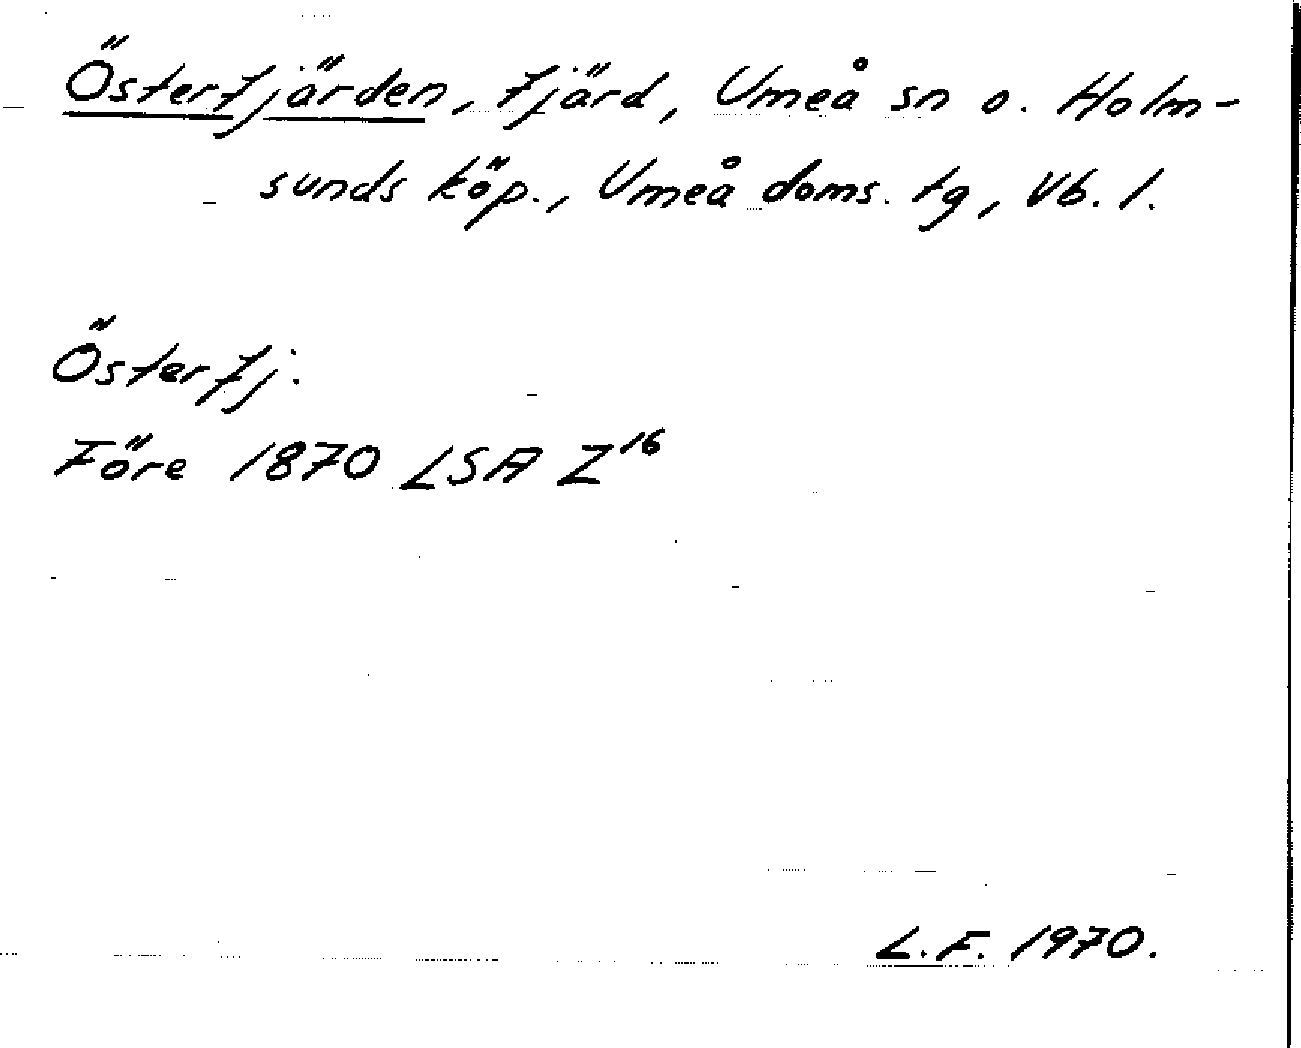 Österfjärden, fjärd, Umeå sn o. Holm-
sunds köp., Umeå doms. tg, Vb. l.
Österfj.
Före 1870 LSA Z16
L.F. 1970.